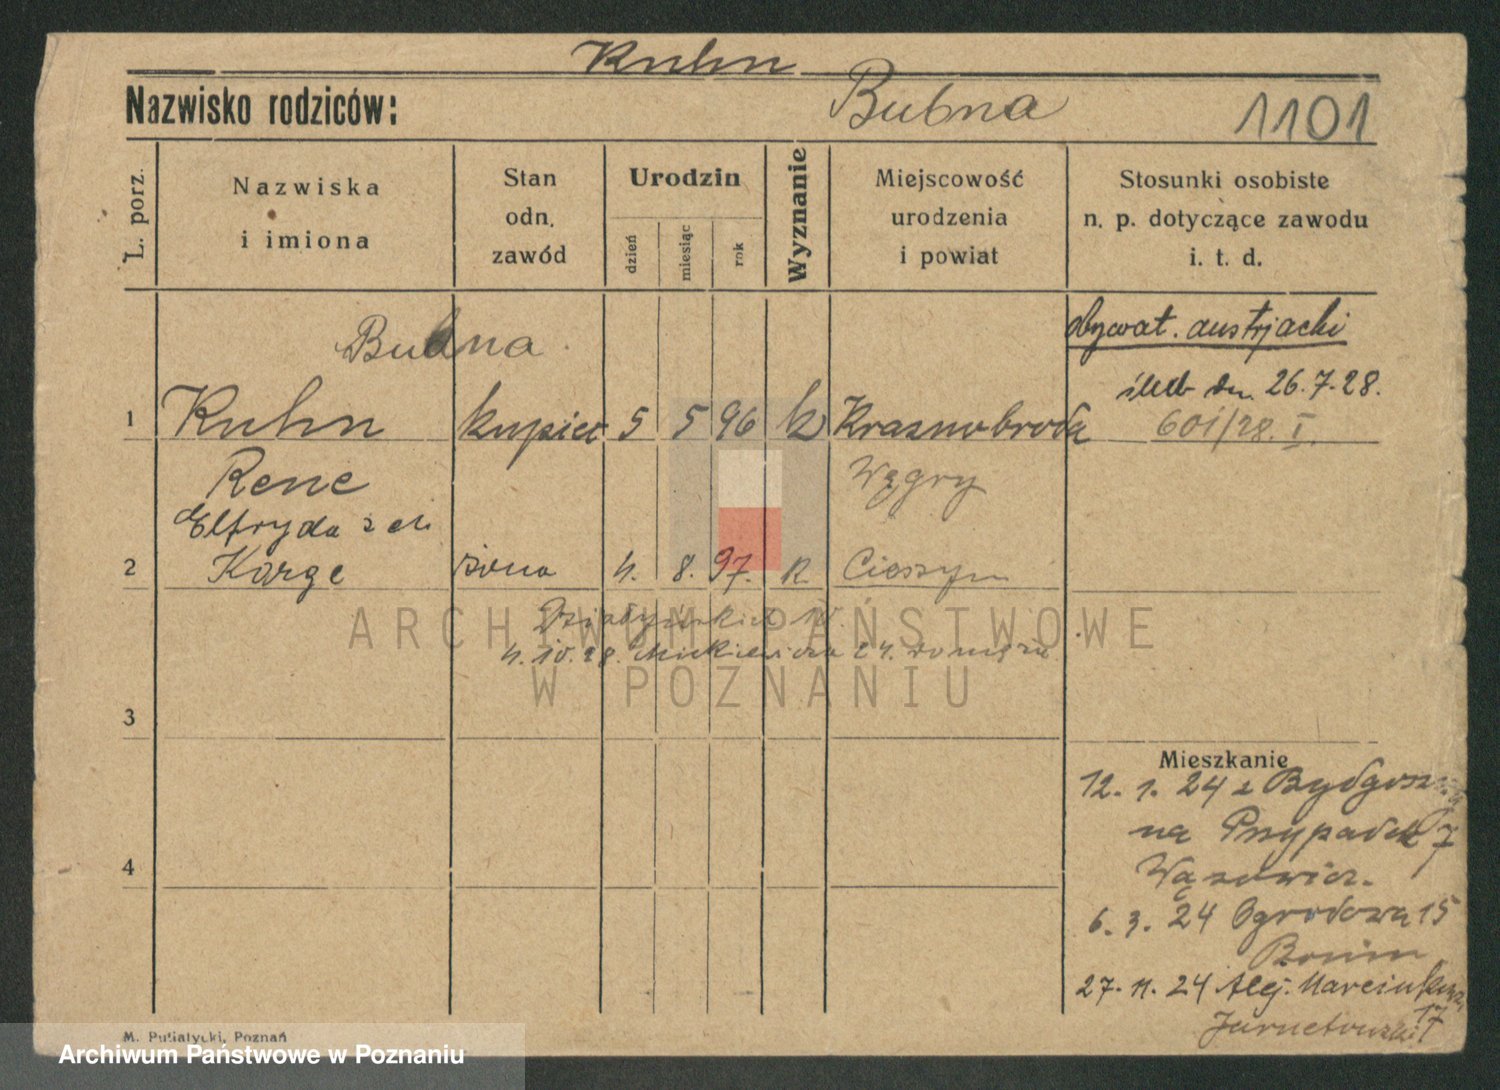 Kuhn
Nazwisko rodziców:
Bubna
1101
L. porz.
Nazwiska
i imiona
Stan
odn.
zawód
Urodzin
dzień
miesiąc
rok
Wyznanie
Miejscowość
urodzenia
i powiat
Stosunki osobiste
n. p. dotyczące zawodu
i. t. d.
obywat. austrjacki
Bubna
ślub dn. 26.7.28.
1 Kuhn kupiec 5 5 96 k Krasnobroda
601/28. I.
Rene
Węgry
Elfryda z d.
2 Karge żona 4. 8. 97. k Cieszyn
Działyńskich 10.
4. 10. 28. Mickiewicza 24.
ARCHIWUM PAŃSTWOWE
W POZNANIU
3
Mieszkanie
12. 1. 24 z Bydgoszczy
na Przypadek 7
Wąsowicz.
4
6. 3. 24 Ogrodowa 15
Bonin
27. 11. 24 Alej. Marcinkow.
17
M. Putiatycki, Poznań
Archiwum Państwowe w Poznaniu